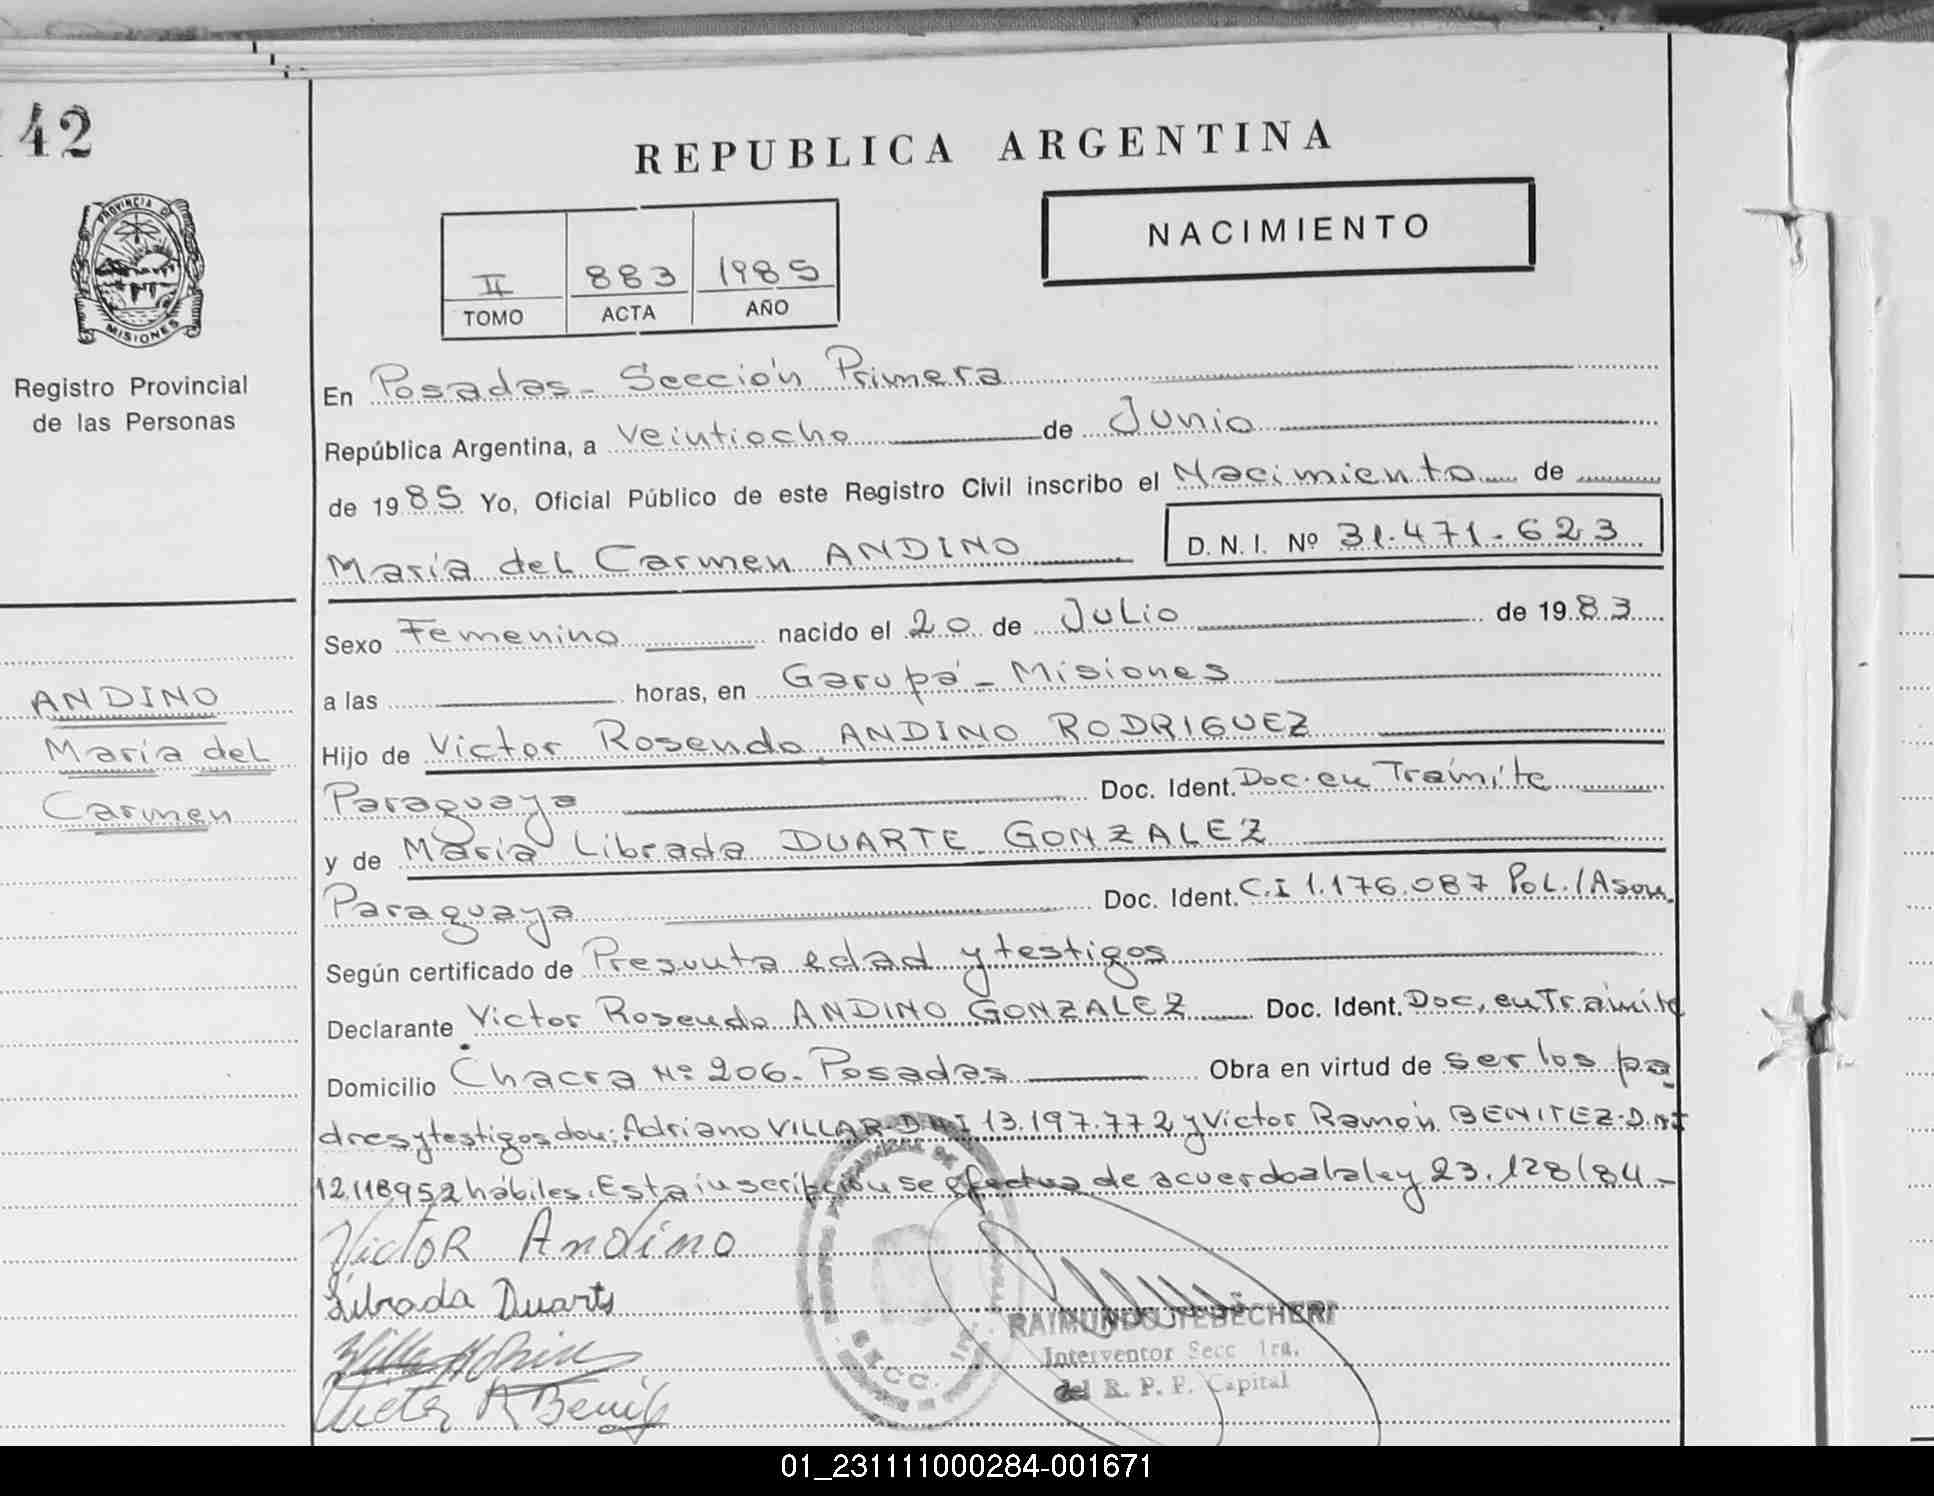 142
REPUBLICA ARGENTINA
NACIMIENTO
II 883 1985
TOMO ACTA AÑO
PROVINCIA DE
MISIONES
Registro Provincial
de las Personas
En Posadas - Sección Primera
República Argentina, a Veintiocho de Junio
de 1985 Yo, Oficial Público de este Registro Civil inscribo el Nacimiento de
María del Carmen ANDINO D. N. I. Nº 31.471.623
Sexo Femenino nacido el 20 de Julio de 1983
a las horas, en Garupá - Misiones
ANDINO
María del
Carmen
Hijo de Victor Rosendo ANDINO RODRIGUEZ
Paraguaya Doc. Ident. Doc. en Trámite
y de María Librada DUARTE GONZALEZ
Paraguaya Doc. Ident. C.I 1.176.087 Pol. / Ason.
Según certificado de Presunta edad y testigos
Declarante Victor Rosendo ANDINO GONZALEZ Doc. Ident. Doc. en Trámite
Domicilio Chacra Nº 206 - Posadas Obra en virtud de ser los pa
dres y testigos don: Adriano VILLAR DNI 13.197.772 y Victor Ramón BENITEZ D.NI
12.118952 hábiles. Esta inscripción se efectua de acuerdo a la ley 23.128/84.-
Victor Andino
Librada Duarte
Victor R Benit
SECC. 1ra.
RAIMUNDO TEBECHERI
Interventor Secc 1ra.
del R. P. P. Capital
01_231111000284-001671